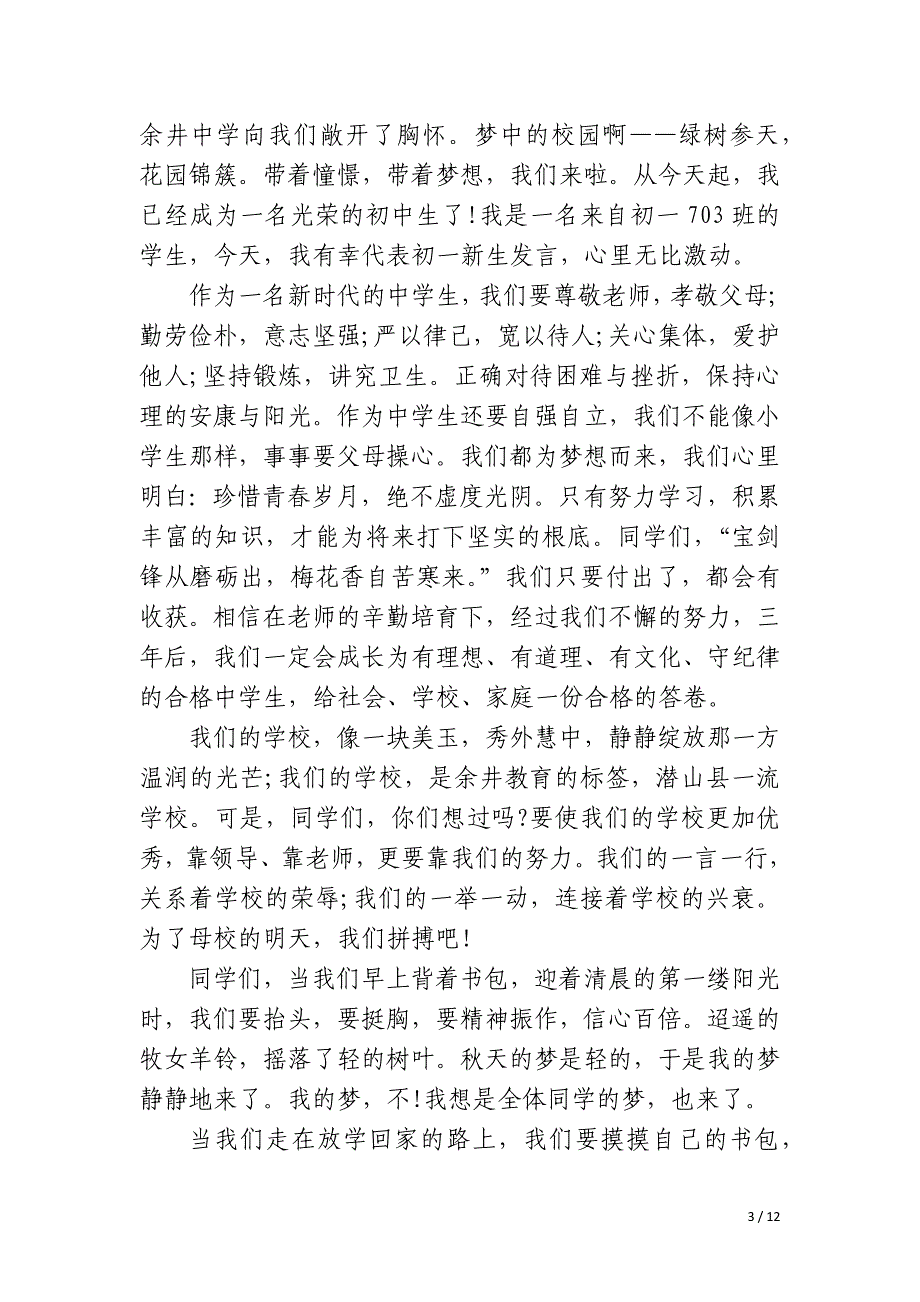 余井中学向我们敞开了胸怀。梦中的校园啊——绿树参天，
花园锦簇。带着憧憬，带着梦想，我们来啦。从今天起，我
已经成为一名光荣的初中生了!我是一名来自初一 703 班的
学生，今天，我有幸代表初一新生发言，心里无比激动。
作为一名新时代的中学生，我们要尊敬老师，孝敬父母;
勤劳俭朴，意志坚强;严以律己，宽以待人;关心集体，爱护
他人;坚持锻炼，讲究卫生。正确对待困难与挫折，保持心
理的安康与阳光。作为中学生还要自强自立，我们不能像小
学生那样，事事要父母操心。我们都为梦想而来，我们心里
明白：珍惜青春岁月，绝不虚度光阴。只有努力学习，积累
丰富的知识，才能为将来打下坚实的根底。同学们，“宝剑
锋从磨砺出，梅花香自苦寒来。”我们只要付出了，都会有
收获。相信在老师的辛勤培育下，经过我们不懈的努力，三
年后，我们一定会成长为有理想、有道理、有文化、守纪律
的合格中学生，给社会、学校、家庭一份合格的答卷。
我们的学校，像一块美玉，秀外慧中，静静绽放那一方
温润的光芒;我们的学校，是余井教育的标签，潜山县一流
学校。可是，同学们，你们想过吗?要使我们的学校更加优
秀，靠领导、靠老师，更要靠我们的努力。我们的一言一行，
关系着学校的荣辱;我们的一举一动，连接着学校的兴衰。
为了母校的明天，我们拼搏吧!
同学们，当我们早上背着书包，迎着清晨的第一缕阳光
时，我们要抬头，要挺胸，要精神振作，信心百倍。迢遥的
牧女羊铃，摇落了轻的树叶。秋天的梦是轻的，于是我的梦
静静地来了。我的梦，不!我想是全体同学的梦，也来了。
当我们走在放学回家的路上，我们要摸摸自己的书包，
3 / 12